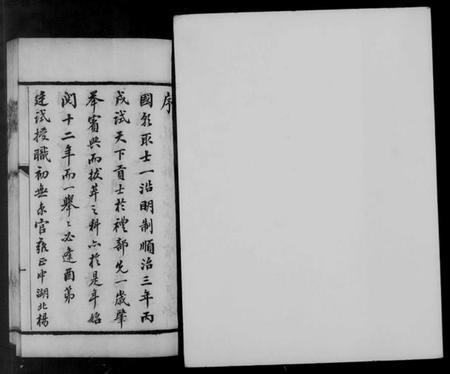 序
國朝取士一沿明制順治三年丙
戌試天下貢士於禮部先一歲肇
舉賓興而拔萃之科亦於是年始
閱十二年而一舉〻必逢酉第
廷試授職初無京官雍正中湖北楊